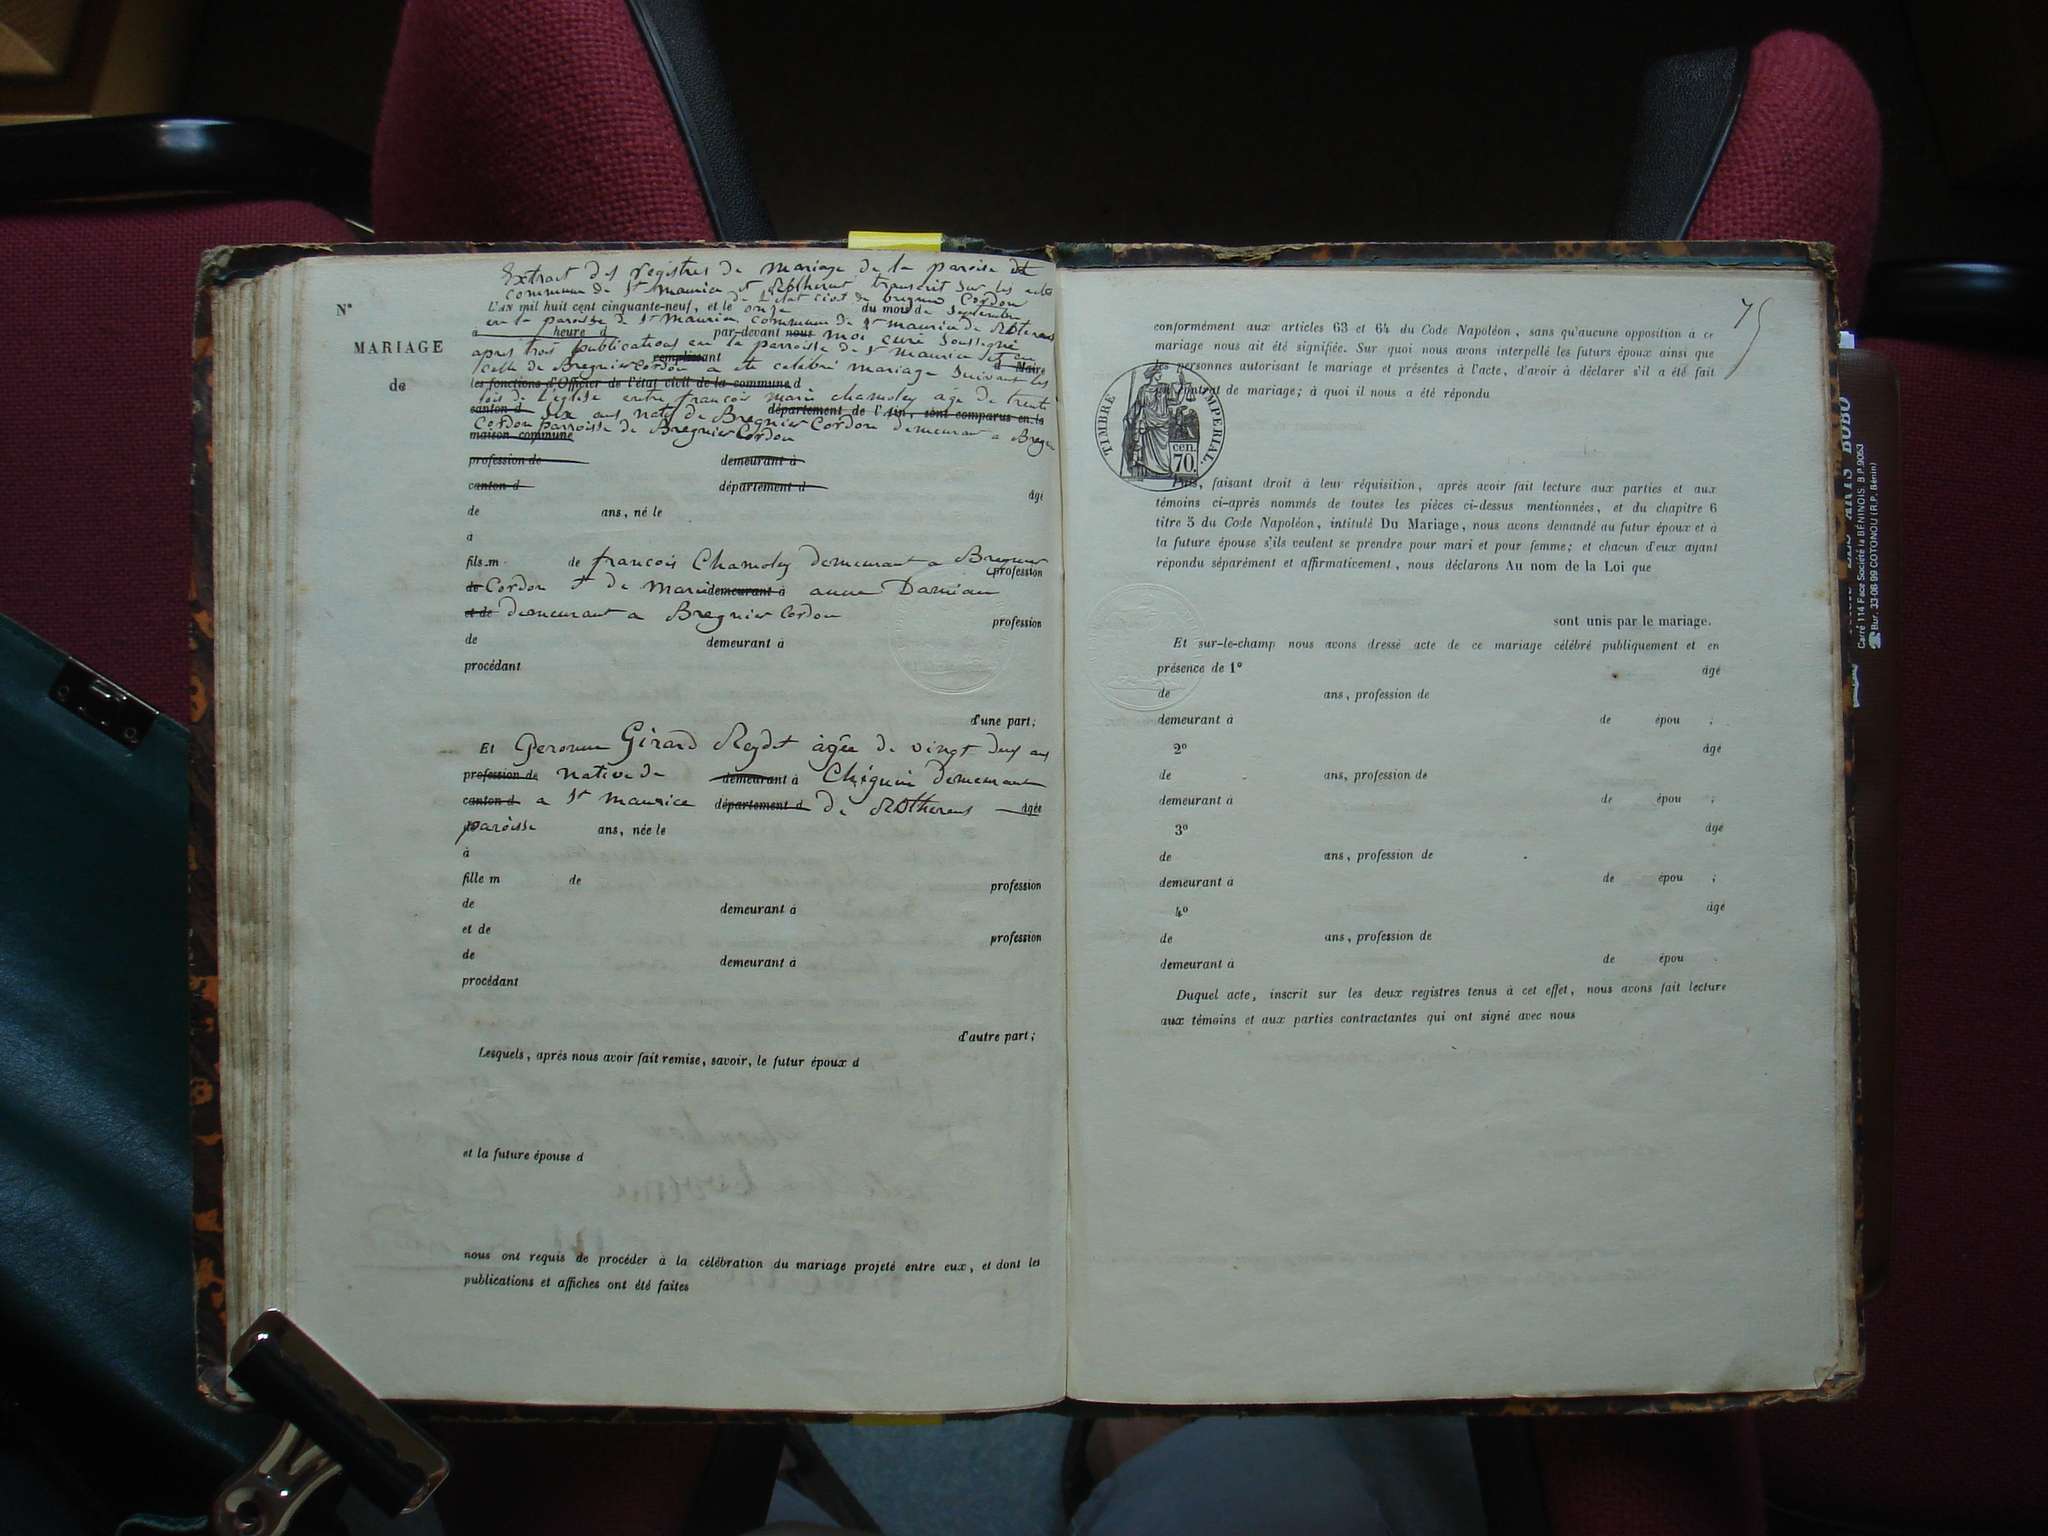 Extrait des registres de mariage de la paroise et
commune de St maurice et Rotherens transcrit sur les actes
de L'etat civil de bregnier Cordon
N°
L'AN mil huit cent cinquante-neuf, et le onze du mois de Septembre
en la paroisse de St maurice commune de St maurice de Rotherens
à heure d par-devant nous moi curé Soussigné
MARIAGE
apres trois publications en la parroisse de St Maurice et en
remplissant d Maire
celle de Bregnier Cordon a ete celebré mariage Suivant les
de
les fonctions d'Officier de l'état civil de la commune d
lois de L'eglise entre françois marie chamoley âgé de trente
canton d Six ans, natif de Bregnier département de l'Ain, sont comparus en la
Cordon parroisse de Bregnier Cordon demeurant a Bregnier
maison commune Cordon
profession de demeurant à
canton d département d âgé
de ans, né le
à
fils m de françois Chamoley demeurant a Bregnier
profession
de Cordon et de Marie demeurant à anne Damian
et de demeurant a Bregnier Cordon
profession
de demeurant à
procédant
d'une part;
Et Geronne Girard Reydet âgée de vingt deux ans
profession de native de demeurant à demeurant
canton d a St maurice département d de Rotherens âgée
paroisse ans, née le
à
fille m de profession
de demeurant à
et de profession
de demeurant à
procédant
d'autre part;
Lesquels, après nous avoir fait remise, savoir, le futur époux d
et la future épouse d
nous ont requis de procéder à la célébration du mariage projeté entre eux, et dont les
publications et affiches ont été faites
75
conformément aux articles 63 et 64 du Code Napoléon, sans qu'aucune opposition à ce
mariage nous ait été signifiée. Sur quoi nous avons interpellé les futurs époux ainsi que
les personnes autorisant le mariage et présentes à l'acte, d'avoir à déclarer s'il a été fait
un contrat de mariage; à quoi il nous a été répondu
TIMBRE IMPERIAL.
cen.
70.
Puis, faisant droit à leur réquisition, après avoir fait lecture aux parties et aux
témoins ci-après nommés de toutes les pièces ci-dessus mentionnées, et du chapitre 6
titre 5 du Code Napoléon, intitulé Du Mariage, nous avons demandé au futur époux et à
la future épouse s'ils veulent se prendre pour mari et pour femme; et chacun d'eux ayant
répondu séparément et affirmativement, nous déclarons Au nom de la Loi que
sont unis par le mariage.
Et sur-le-champ nous avons dressé acte de ce mariage célébré publiquement et en
présence de 1° âgé
de ans, profession de
demeurant à de épou ;
2° âgé
de ans, profession de
demeurant à de épou ;
3° âgé
de ans, profession de
demeurant à de épou ;
4° âgé
de ans, profession de
demeurant à de épou .
Duquel acte, inscrit sur les deux registres tenus à cet effet, nous avons fait lecture
aux témoins et aux parties contractantes qui ont signé avec nous
ARTS BOBO
Carré 114 Face Société la BÉNINOIS B.P. 9053
Bur. 33-06-99 COTONOU (R.P. Bénin)